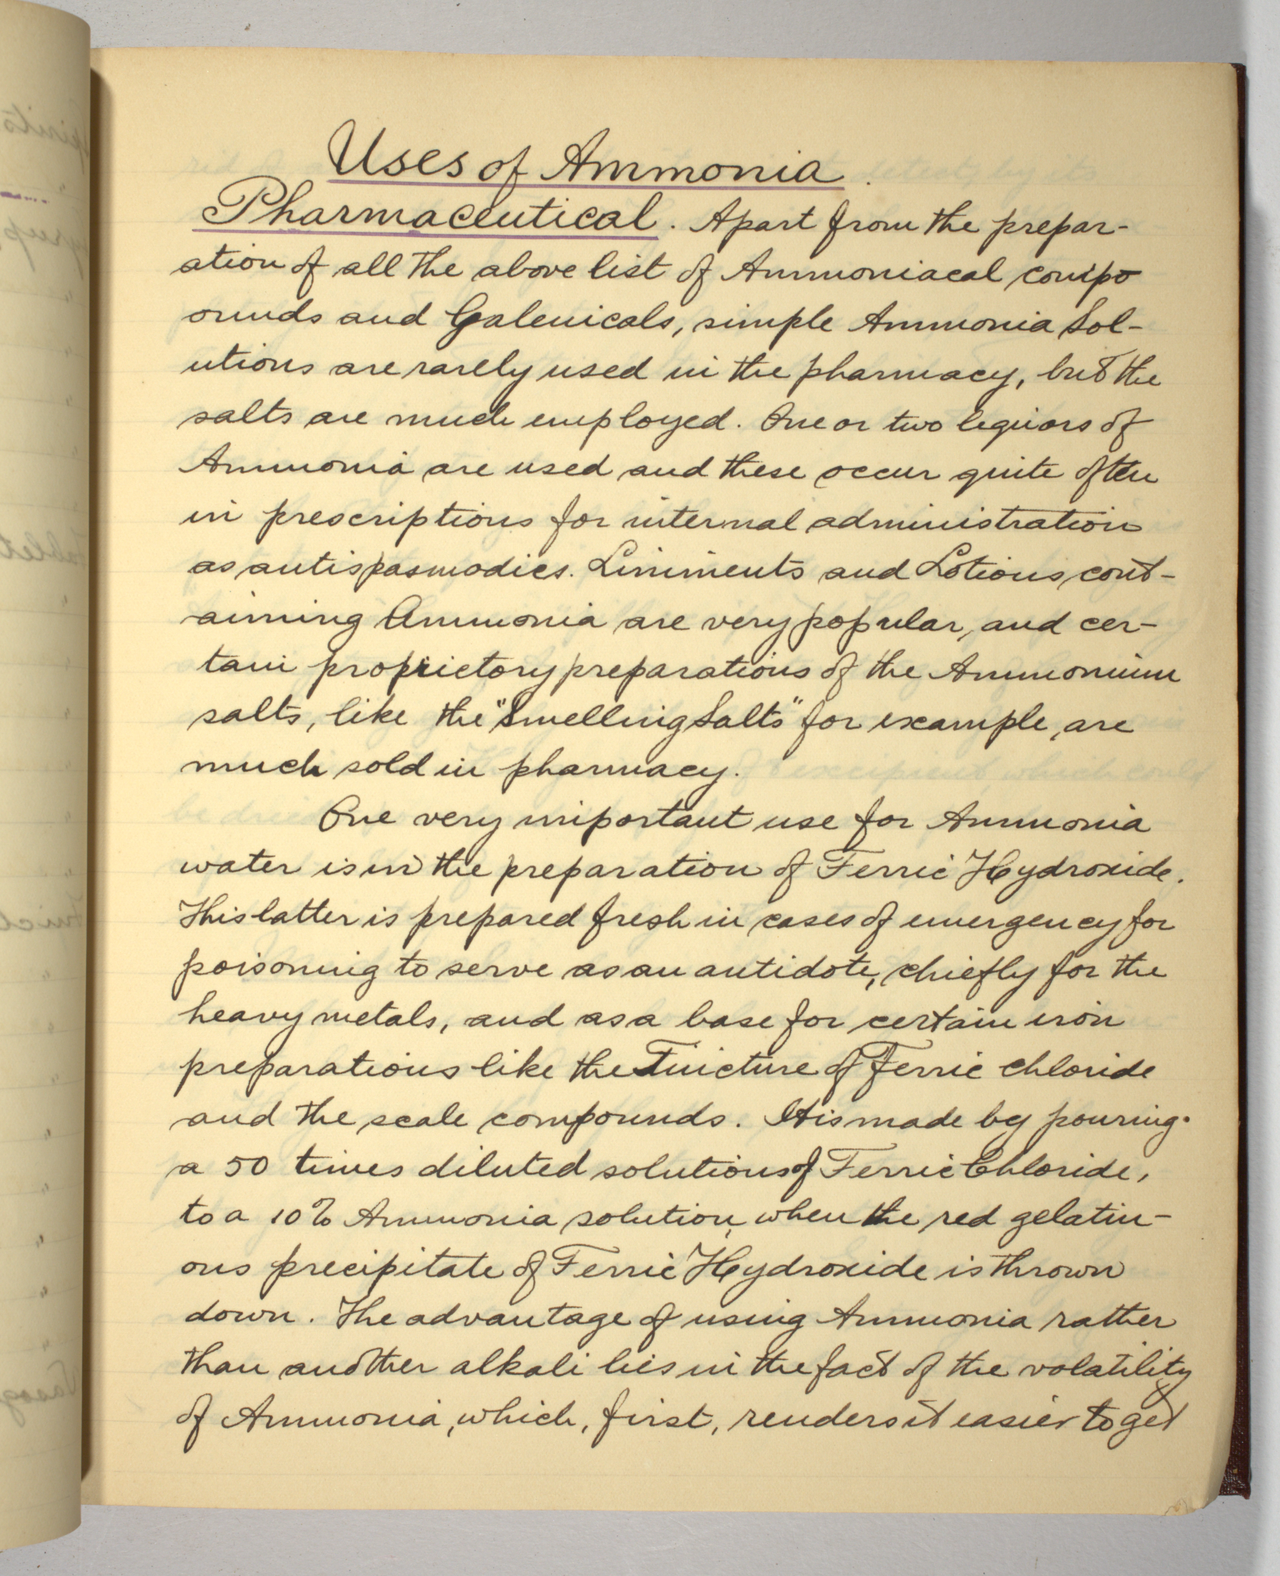 Uses of Ammonia.
Pharmaceutical. Apart from the prepar-
ation of all the above list of Ammoniacal compo
ounds and Galenicals, simple Ammonia Sol-
utions are rarely used in the pharmacy, but the
salts are much employed. One or two liquors of
Ammonia are used and these occur quite often
in prescriptions for internal administration
as antispasmodics. Liniments and Lotions, cont-
aining Ammonia are very popular, and cer-
tain proprietory preparations of the Ammonium
salts, like the "Smelling Salts" for example, are
much sold in pharmacy.
One very important use for Ammonia
water is in the preparation of Ferric Hydroxide.
This latter is prepared fresh in cases of emergency for
poisoning to serve as an antidote, chiefly for the
heavy metals, and as a base for certain iron
preparations like the Tincture of Ferric Chloride
and the scale compounds. It is made by pouring
a 50 times diluted solution of Ferric Chloride,
to a 10% Ammonia solution, when the red gelatin-
ous precipitate of Ferric Hydroxide is thrown
down. The advantage of using Ammonia rather
than another alkali lies in the fact of the volatility
of Ammonia, which, first, renders it easier to get